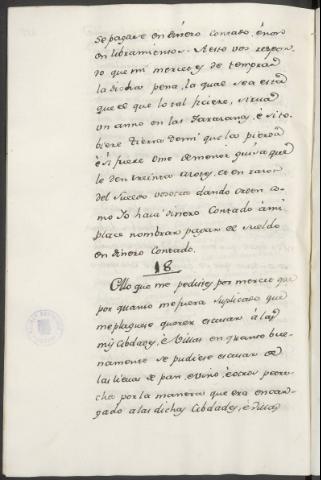 se pagase en dinero Contado, é non
en libramientos. A esto vos respon-
do que mi merced es de temprar
la dicha pena, la qual sea esta
que el que lo tal ficiere, sirva
un anno en las Tarazanas, é si to-
biere tierra de mi que la pierda
é si fuere ome de menor guisa que
le den treinta azotes, et en razon
del sueldo dando orden co-
mo Yo haia dinero Contado á mi
place nombrar pagar el sueldo
en dinero Contado.
18
Otro que me pedistes por merced que
por quanto me fuera suplicado que
me plaguiese querer escusar á las
mis Cibdades, é Villas en quanto bue-
namente se pudiese escusar de
las lievas de pan, é vino, é otros pertre-
chos por la manera que era encar-
gado a las dichas Cibdades, é Villas